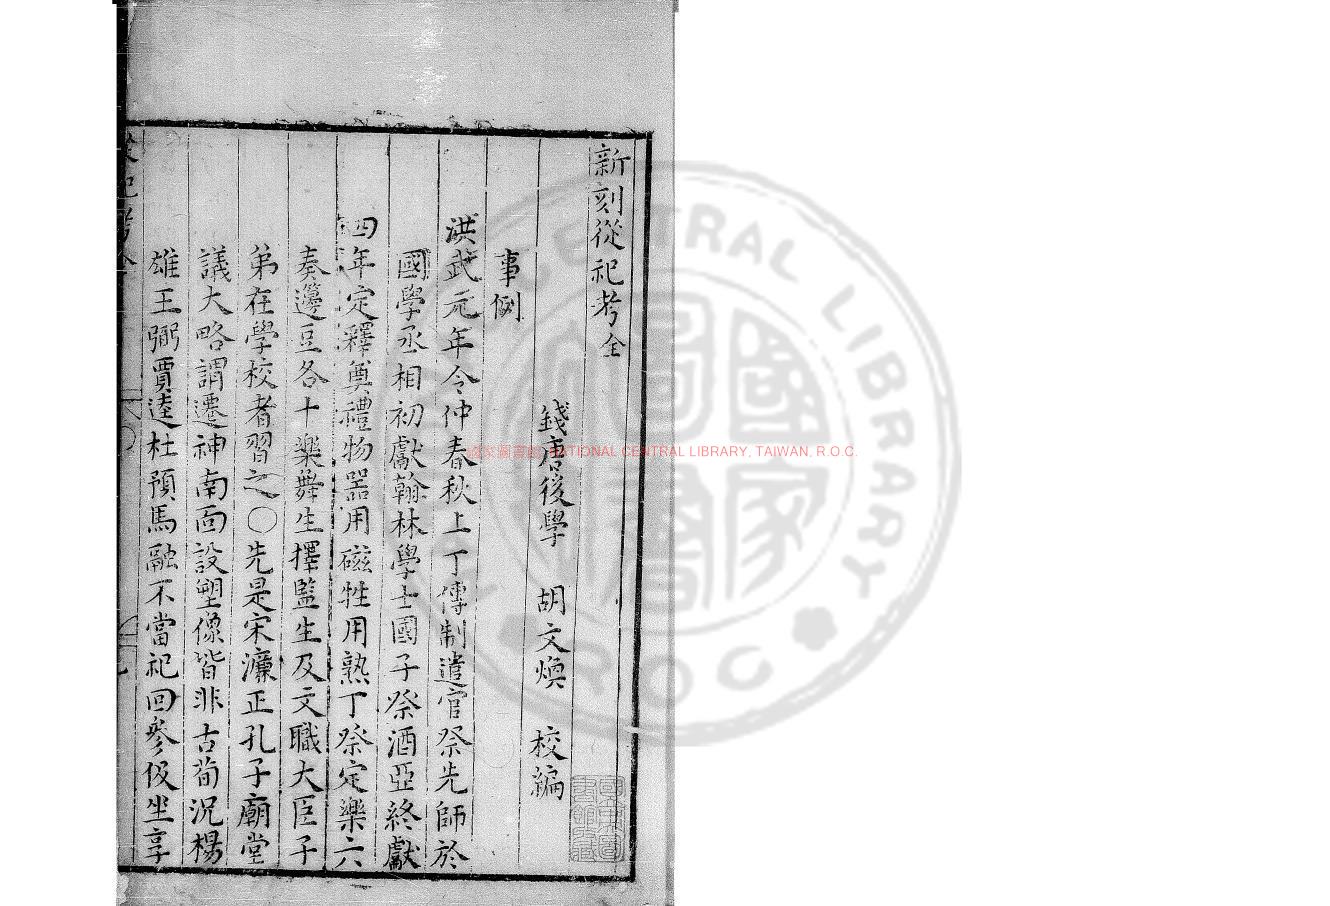 新刻從祀考全
錢唐後學 胡文煥 校編
事例
洪武元年令仲春秋上丁傳制遣官祭先師於
國學丞相初獻翰林學士國子祭酒亞終獻
四年定釋奠禮物器用磁牲用熟丁祭定樂六
奏籩豆各十樂舞生擇監生及文職大臣子
弟在學校者習之〇先是宋濂正孔子廟堂
議大略謂遷神南面設塑像皆非古荀況楊
雄王弼賈逵杜預馬融不當祀回參伋坐享
國家圖書館 NATIONAL CENTRAL LIBRARY, TAIWAN, R.O.C.
CENTRAL LIBRARY
R O C
國家圖書館